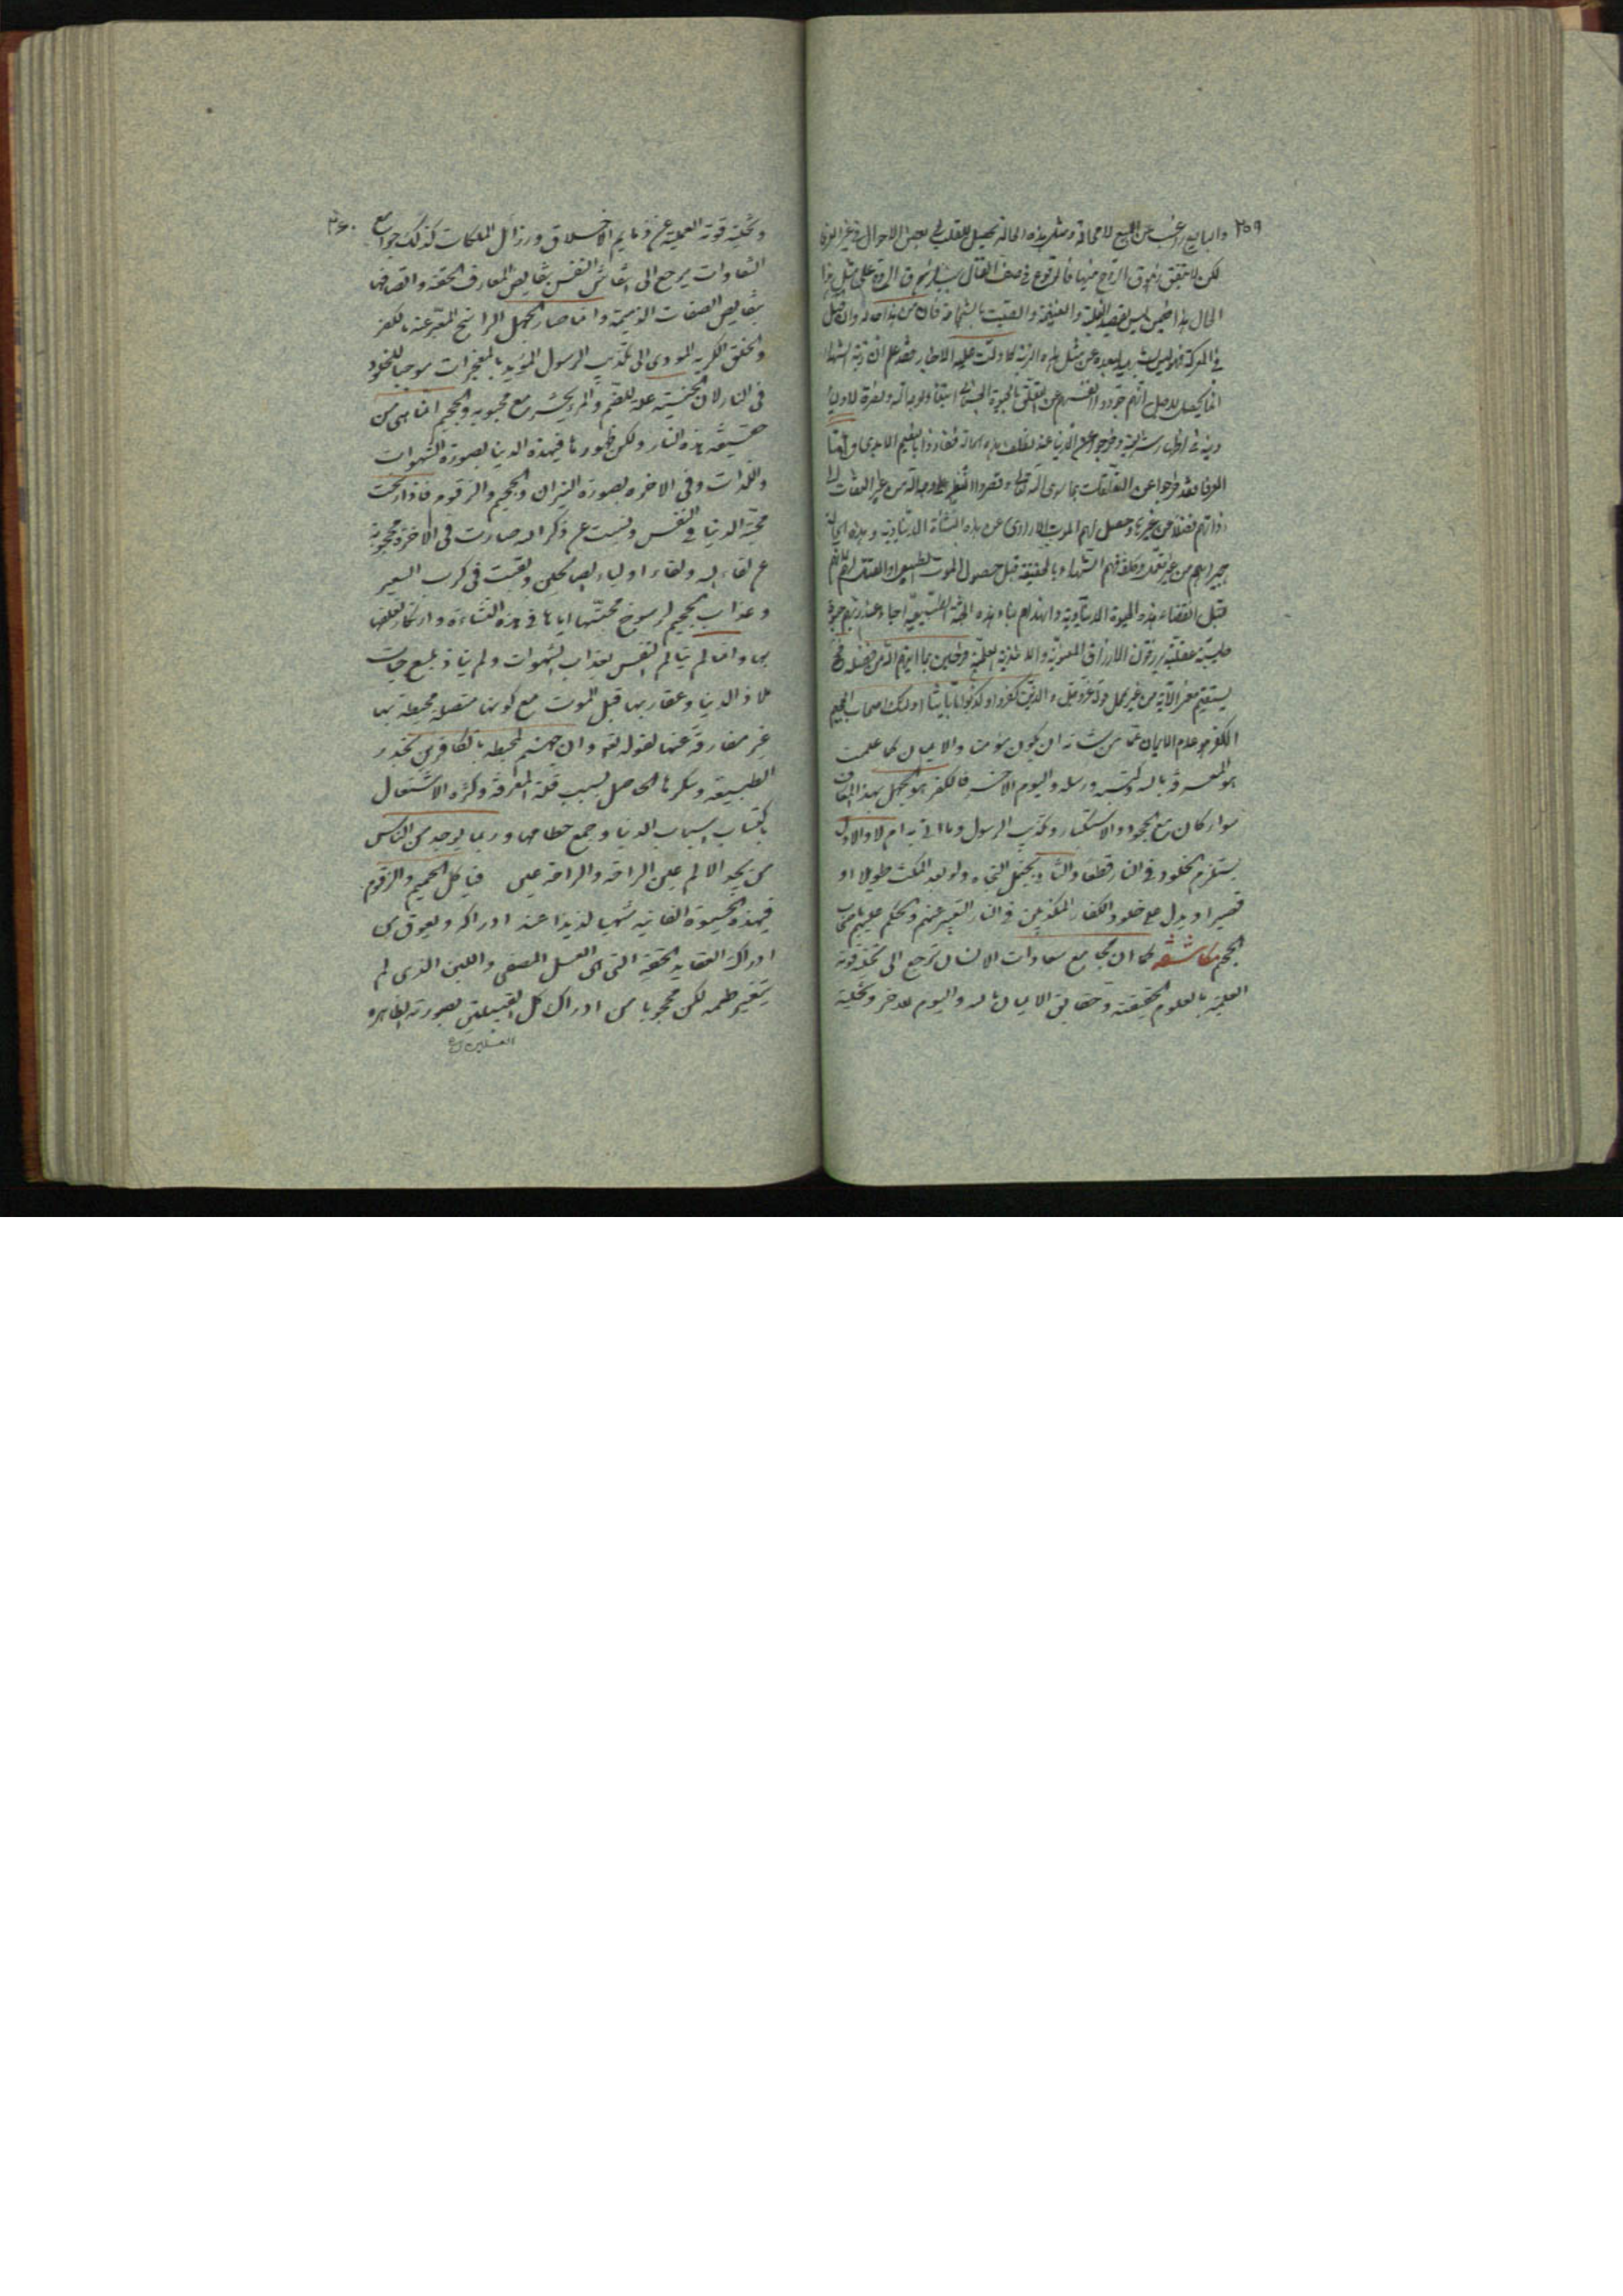 ٢٥٩ والبايع راغب عن المبيع لا محالة ومثل هذه الحالة تحصيل للقلب في بعض الاحوال في غير العرفا
لكن لا يتفق زهوق الروح فيها فالوقوع في صف القتال سبب زهوق الروح على مثل هذا
الحال هذا فيمن ليس يقصد الغلبة والغنيمة والصيت بالشجاعة فان من هذا حاله وان قتل
في المعركة فهو ليس بشهيد لبعده عن مثل هذه الرتبة كما دلت عليه الاخبار فقد علم ان رتبة الشهداء
انما يحصل لاجل انهم جردوا انفسهم عن التعلق بالحيوة ابتغاء لوجه الله ونصرة لاولياء
دينه في اظهار شريعته وخرجوا عن الدنيا عند هذه الحالة ففازوا بالنعيم الابدى واما
العرفا فقد خرجوا عن التعلقات بما سوى الله تعالى وقصروا النظر على وجه الله من غير التفات الى
ذواتهم فضلا عن غيرها وحصل لهم الموت الارادى عن هذه النشأة الدنياوية وهذه الحالة
من غير تعمد وتكلف فهم الشهداء بالحقيقة قبل حصول الموت الطبيعى او القتل لهم
قبل انقضاء هذه الحيوة الدنياوية وانهدام بناء هذه الجثة الطبيعية احياء عند ربهم حيوة
طيبة عقلية يرزقون الارزاق المعنوية والاغذية العلمية فرحين بما اتيهم الله من فضله
يستقيم معنى الاية من غير تمحل قوله عز وجل والذين كفروا وكذبوا باياتنا اولئك اصحاب الجحيم
الكفر هو عدم الايمان عما من شانه ان يكون مؤمنا والايمان كما علمت
هو المعرفة بالله وكتبه ورسله واليوم الاخر فالكفر هو الجهل بهذه المعارف
سواء كان مع الجحود والاستكبار وتكذيب الرسول وما اتى به ام لا والاول
يستلزم الخلود في النار قطعا والثانى يحتمل النجاة ولو بعد المكث طويلا او
قصيرا ويدل على خلود الكفار المكذبين في النار التعبير عنهم والحكم عليهم باصحاب
الجحيم مكاشفة كما ان مجامع سعادات الانسان ترجع الى تحلية قوته
العلمية بالعلوم الحقيقة وحقايق الايمان بالله واليوم الاخر وتخلية
٢٦٠
وتخلية قوته العملية عن ذمايم الاخلاق ورذائل الملكات كذلك جوامع
الشقاوات يرجع الى انتقاش النفس بنقايض المعارف الحقة واتصافها
بنقايض الصفات الذميمة وانما صار الجهل الراسخ المعبر عنه بالكفر
والخلق الكريه المودى الى تكذيب الرسول المؤيد بالمعجزات موجبا للخلود
في النار لان الجنسية علة للضم والمرء يحشر مع محبوبه والجحيم انما هى من
حقيقة هذه النار ولكن ظهورها في هذه الدنيا بصورة الشهوات
واللذات وفي الاخره بصورة النيران والجحيم والزقوم فاذا رسخت
محبة الدنيا في النفس ونسيت عن ذكر الله صارت في الاخرة محجوبة
عن لقاء الله ولقاء اولياء الصالحين وبقيت في كرب السعير
وعذاب الجحيم لرسوخ محبتها اياها في هذه النشاءة وارتكاز تعلقها
بها وانما لم يتالم النفس بعذاب الشهوات ولم يتاذ بلسع حيات
ملاذ الدنيا وعقاربها قبل الموت مع كونها متصلة محيطة بها
غير مفارقة عنها لقوله تعالى وان جهنم لمحيطة بالكافرين لخدر
الطبيعة وسكرها الحاصل بسبب قلة المعرفة وكثرة الاشتغال
باكتساب اسباب الدنيا وجمع حطامها وربما يوجد من الناس
من يجد الالم عين الراحة والراحة عين فياكل الحميم والزقوم
في هذه الحيوة الفانيه شهيا لذيذا عند ادراكه ويعوق من
ادراك العقايد الحقة التى هى العسل المصفى واللبن الذى لم
يتغير طعمه لكن محجوبا من ادراك كل القبيلتين بصورته الظاهره